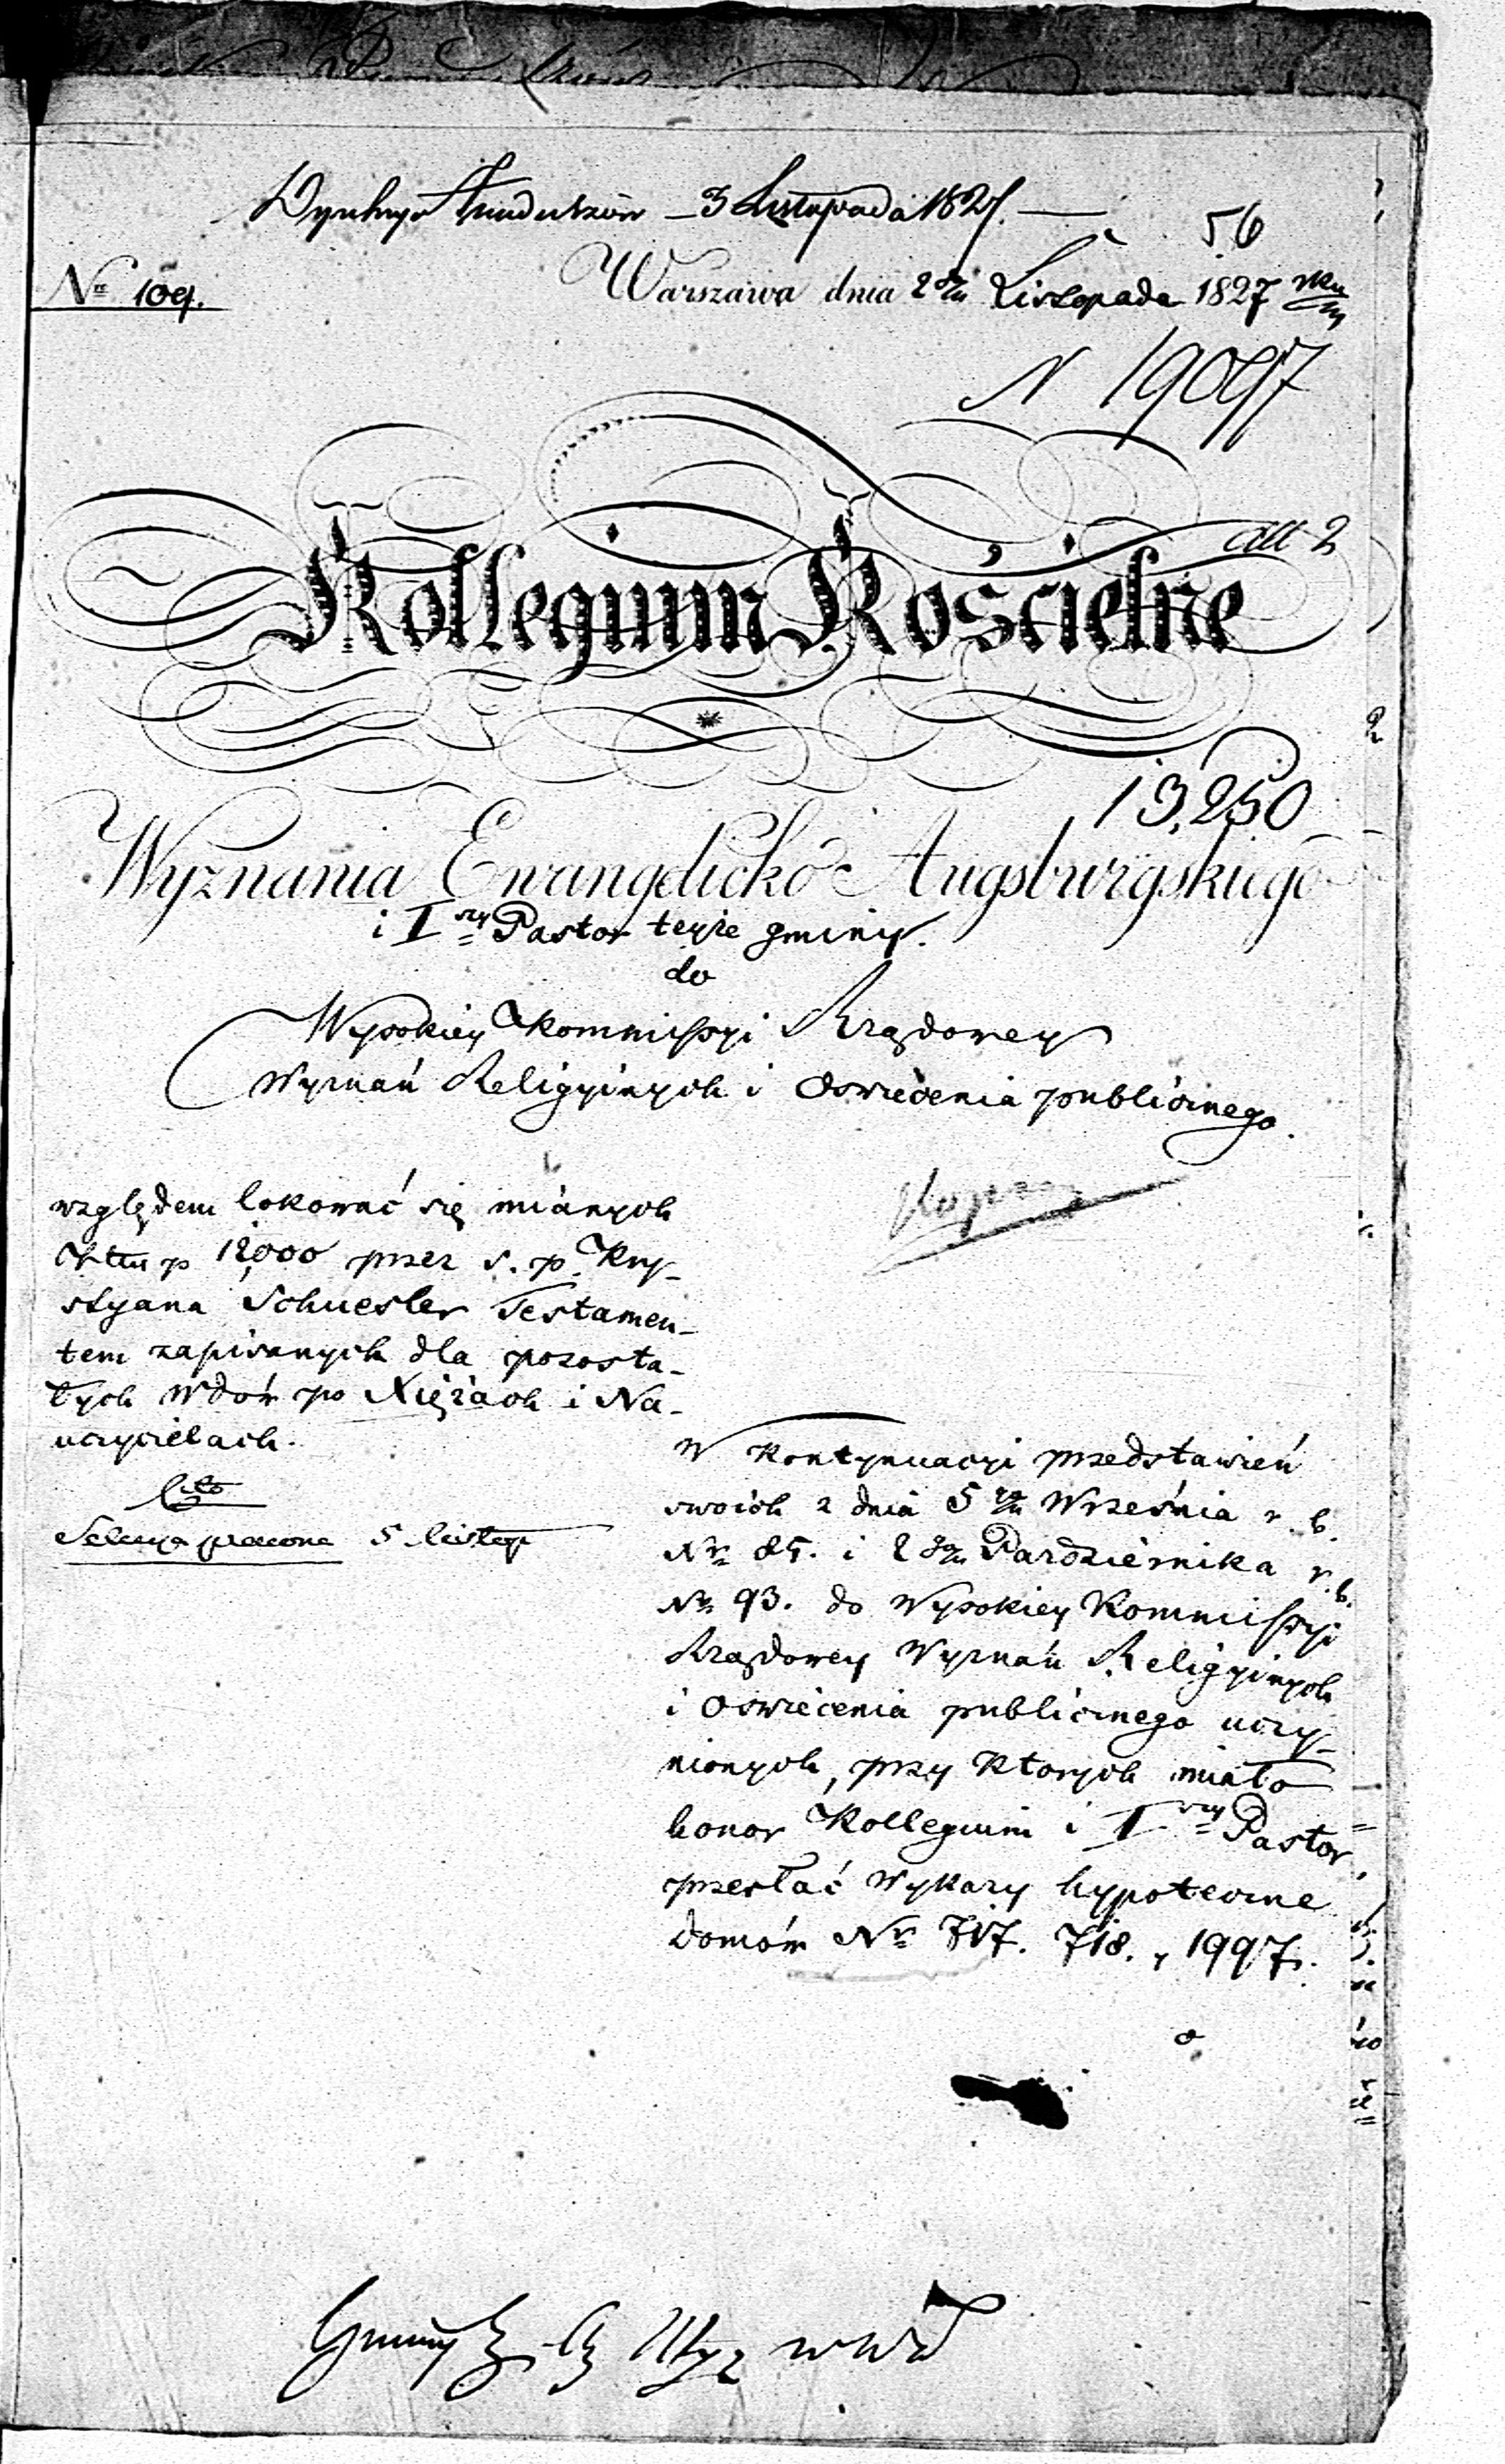 3 Listopada 1827.
56
Nro 109.
Warszawa dnia 2go Listopada 1827 rku
N 19097
all 2
Kollegium Kościelne
13,250
Wyznania Ewangelicko-Augsburgskiego
i Iszy Pastor teyże gminy.
do
Wysokiey Kommissyi Rządowey
Wyznań Religyinych i Oswiecenia publicznego.
względem lokować się mianych
Złtu p 12,000 przez s. p. Kry-
styana Schuesler Testamen-
tem zapisanych dla pozosta-
łych Wdów po Xiężach i Na-
uczycielach.
Cito
Sekcya prawna 5 listop
W kontynuacyi przedstawień
swoich z dnia 5go Września r. b.
Nro 85. i 2go Pazdziernika r. b.
Nro 93. do Wysokiey Kommissyi
Rządowey Wyznań Religyinych
i Oswiecenia publicznego uczy-
nionych, przy ktorych miało
honor Kollegium i Iszy Pastor,
przesłać Wykazy hypoteczne
domów Nro 717. 718. , 1997.